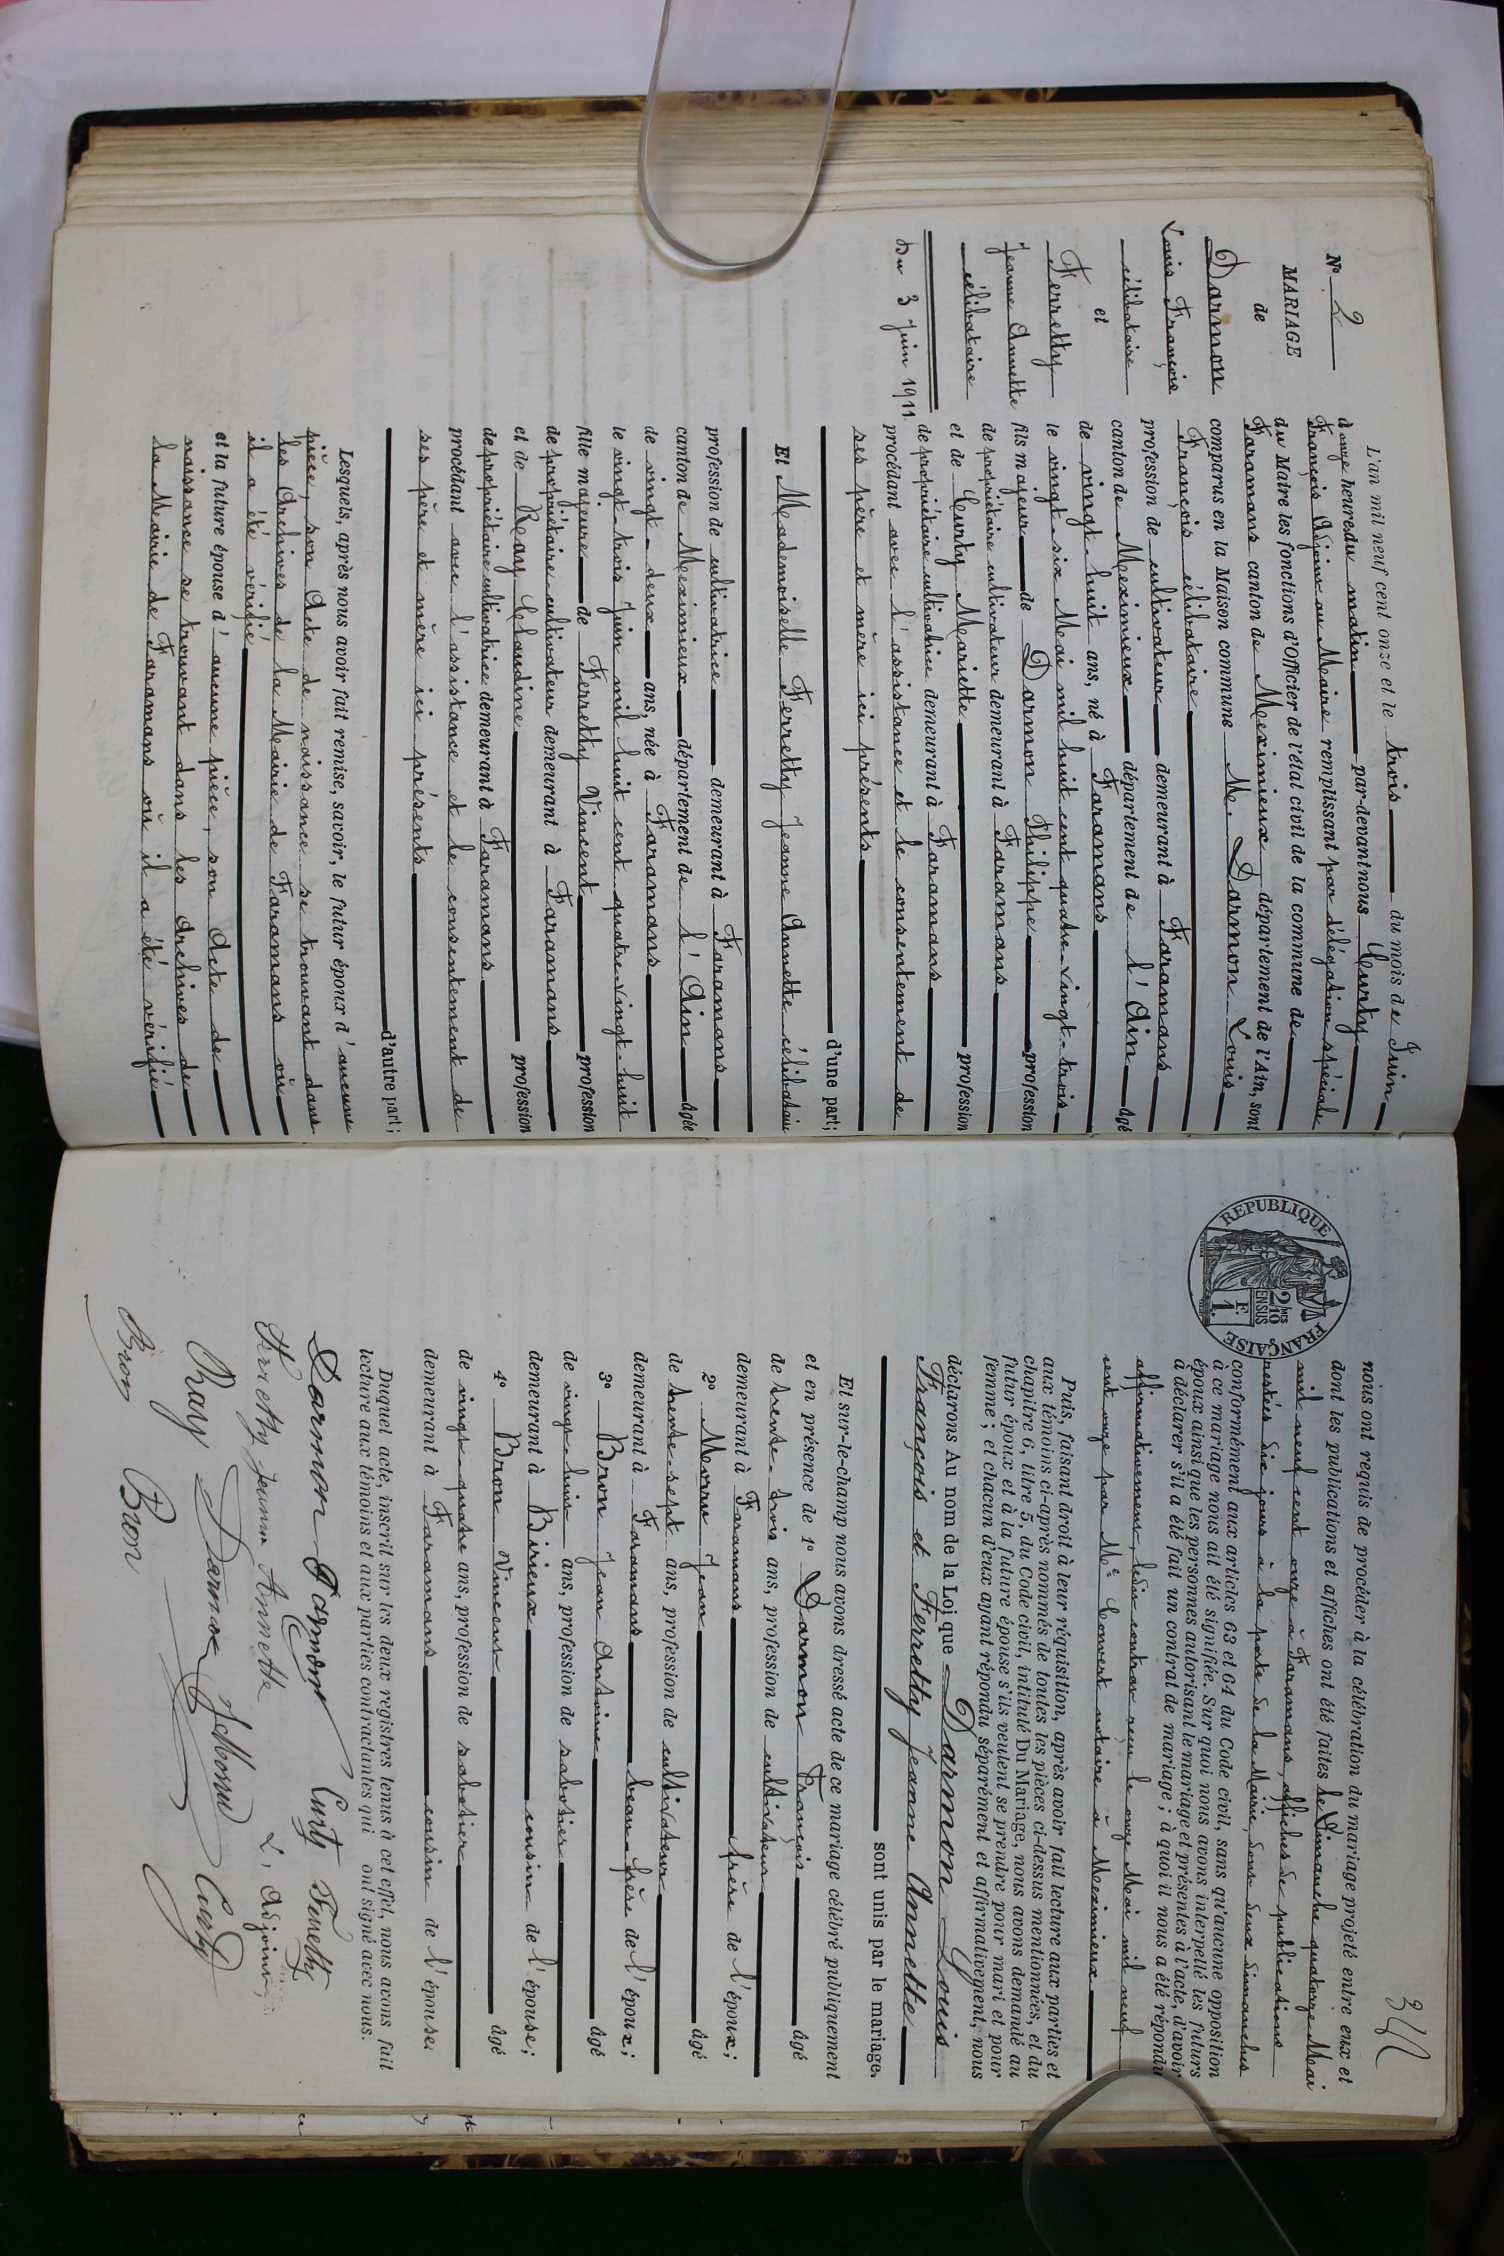 N° 2
MARIAGE
de
Darmon
Louis François
célibataire
et
Ferretty
Jeanne Annette
célibataire
Du 3 Juin 1911
L'an mil neuf cent onze et le trois du mois de Juin
à onze heures du matin par-devant nous Curty
François Adjoint au Maire remplissant par délégation spéciale
du Maire les fonctions d'Officier de l'état civil de la commune de
Faramans canton de Meximieux, département de l'Ain, sont
comparus en la Maison commune M. Darmon Louis
François célibataire
profession de cultivateur demeurant à Faramans
canton de Meximieux département de l'Ain âgé
de vingt-huit ans, né à Faramans
le vingt six Mai mil huit cent quatre-vingt-trois
fils majeur de Darmon Philippe profession
de propriétaire cultivateur demeurant à Faramans
et de Curty Mariette profession
de propriétaire cultivatrice demeurant à Faramans
procédant avec l'assistance et le consentement de
ses père et mère ici présents
d'une part;
Et Mademoiselle Ferretty Jeanne Annette célibataire
profession de cultivatrice demeurant à Faramans
canton de Meximieux département de l'Ain âgée
de vingt-deux ans, née à Faramans
le vingt-trois Juin mil huit cent quatre-vingt-huit
fille majeure de Ferretty Vincent profession
de propriétaire cultivateur demeurant à Faramans
et de Ray Claudine profession
de propriétaire cultivatrice demeurant à Faramans
procédant avec l'assistance et le consentement de
ses père et mère ici présents
d'autre part;
Lesquels, après nous avoir fait remise, savoir, le futur époux d'aucune
pièce, son Acte de naissance se trouvant dans
les Archives de la Mairie de Faramans où
il a été vérifié
et la future épouse d'aucune pièce, son Acte de
naissance se trouvant dans les Archives de
la Mairie de Faramans où il a été vérifié
REPUBLIQUE FRANÇAISE
2/10mes
EN SUS
1 F.
nous ont requis de procéder à la célébration du mariage projeté entre eux et
dont les publications et affiches ont été faites le Dimanche quatorze Mai
mil neuf cent onze à Faramans, affiches de publications
restées dix jours à la porte de la Mairie, dont deux dimanches
conformément aux articles 63 et 64 du Code civil, sans qu'aucune opposition
à ce mariage nous ait été signifiée. Sur quoi nous avons interpellé les futurs
époux ainsi que les personnes autorisant le mariage et présentes à l'acte, d'avoir
à déclarer s'il a été fait un contrat de mariage; à quoi il nous a été répondu
affirmativement, ledit contrat reçu le onze Mai mil neuf
cent onze par Me Convert notaire à Meximieux
Puis, faisant droit à leur réquisition, après avoir fait lecture aux parties et
aux témoins ci-après nommés de toutes les pièces ci-dessus mentionnées, et du
chapitre 6, titre 5, du Code civil, intitulé Du Mariage, nous avons demandé au
futur époux et à la future épouse s'ils veulent se prendre pour mari et pour
femme; et chacun d'eux ayant répondu séparément et affirmativement, nous
déclarons Au nom de la Loi que Darmon Louis
François et Ferretty Jeanne Annette
sont unis par le mariage.
Et sur-le-champ nous avons dressé acte de ce mariage célébré publiquement
et en présence de 1° Darmon François âgé
de trente-trois ans, profession de cultivateur
demeurant à Faramans frère de l'époux;
2° Morru Jean âgé
de trente-sept ans, profession de cultivateur
demeurant à Faramans beau-frère de l'époux;
3° Bron Jean Antoine âgé
de vingt-huit ans, profession de sabotier
demeurant à Birieux cousin de l'épouse;
4° Bron Vincent âgé
de vingt-quatre ans, profession de sabotier
demeurant à Faramans cousin de l'épouse.
Duquel acte, inscrit sur les deux registres tenus à cet effet, nous avons fait
lecture aux témoins et aux parties contractantes qui ont signé avec nous.
Darmon Darmon Curty Ferretty
Ferretty Jeanne Annette L'Adjoint,
Ray Darmon Curty
Bron Bron